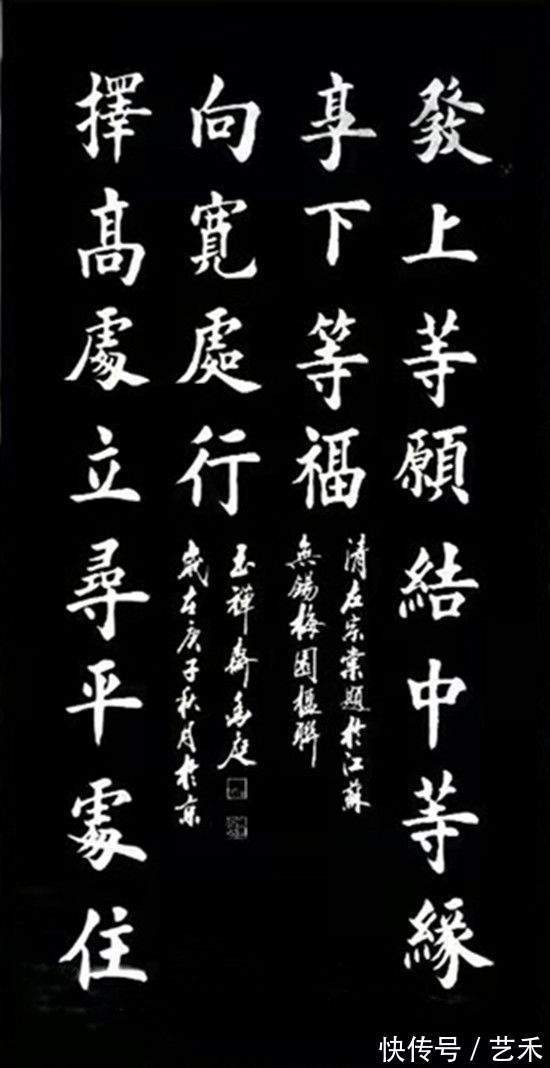 發上等願結中等緣
享下等福
清左宗棠題於江蘇
無錫梅園楹聯
擇髙處立尋平處住
向寬處行
玉禪齋庭
歲在庚子秋月於京
快传号 / 艺禾